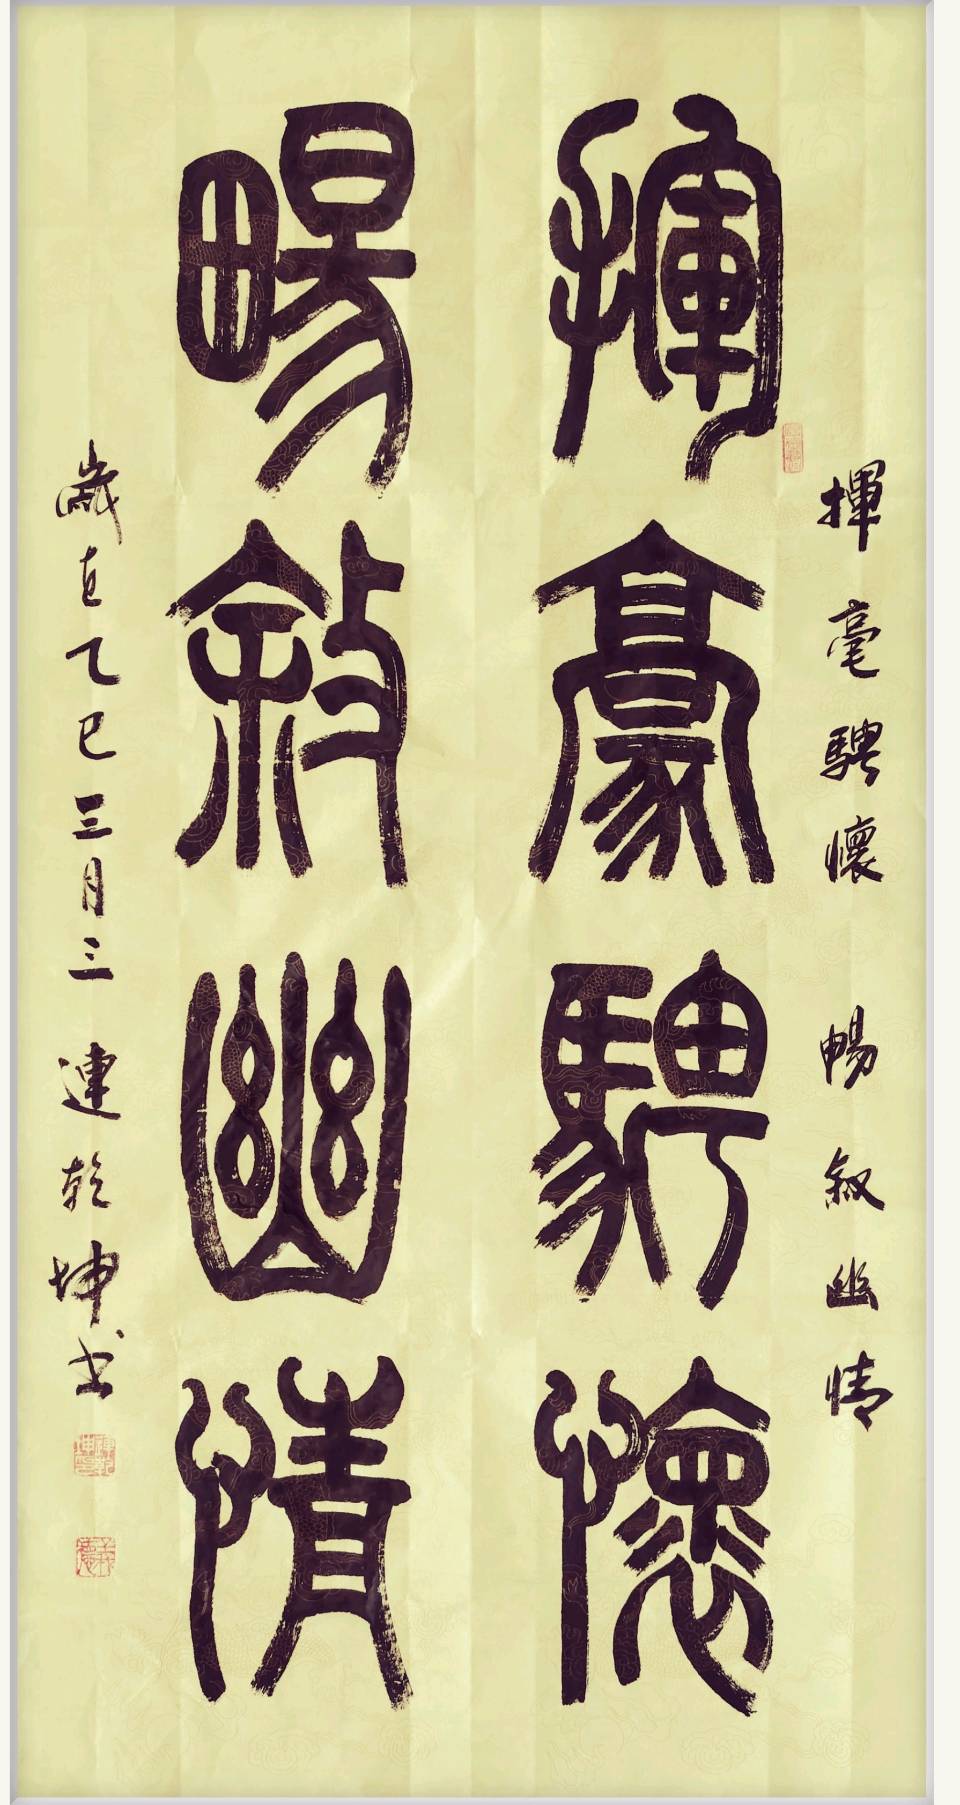 揮毫騁懷 暢敘幽情
揮豪騁懷
暢敘幽情
歲在乙巳三月三 連乾坤書